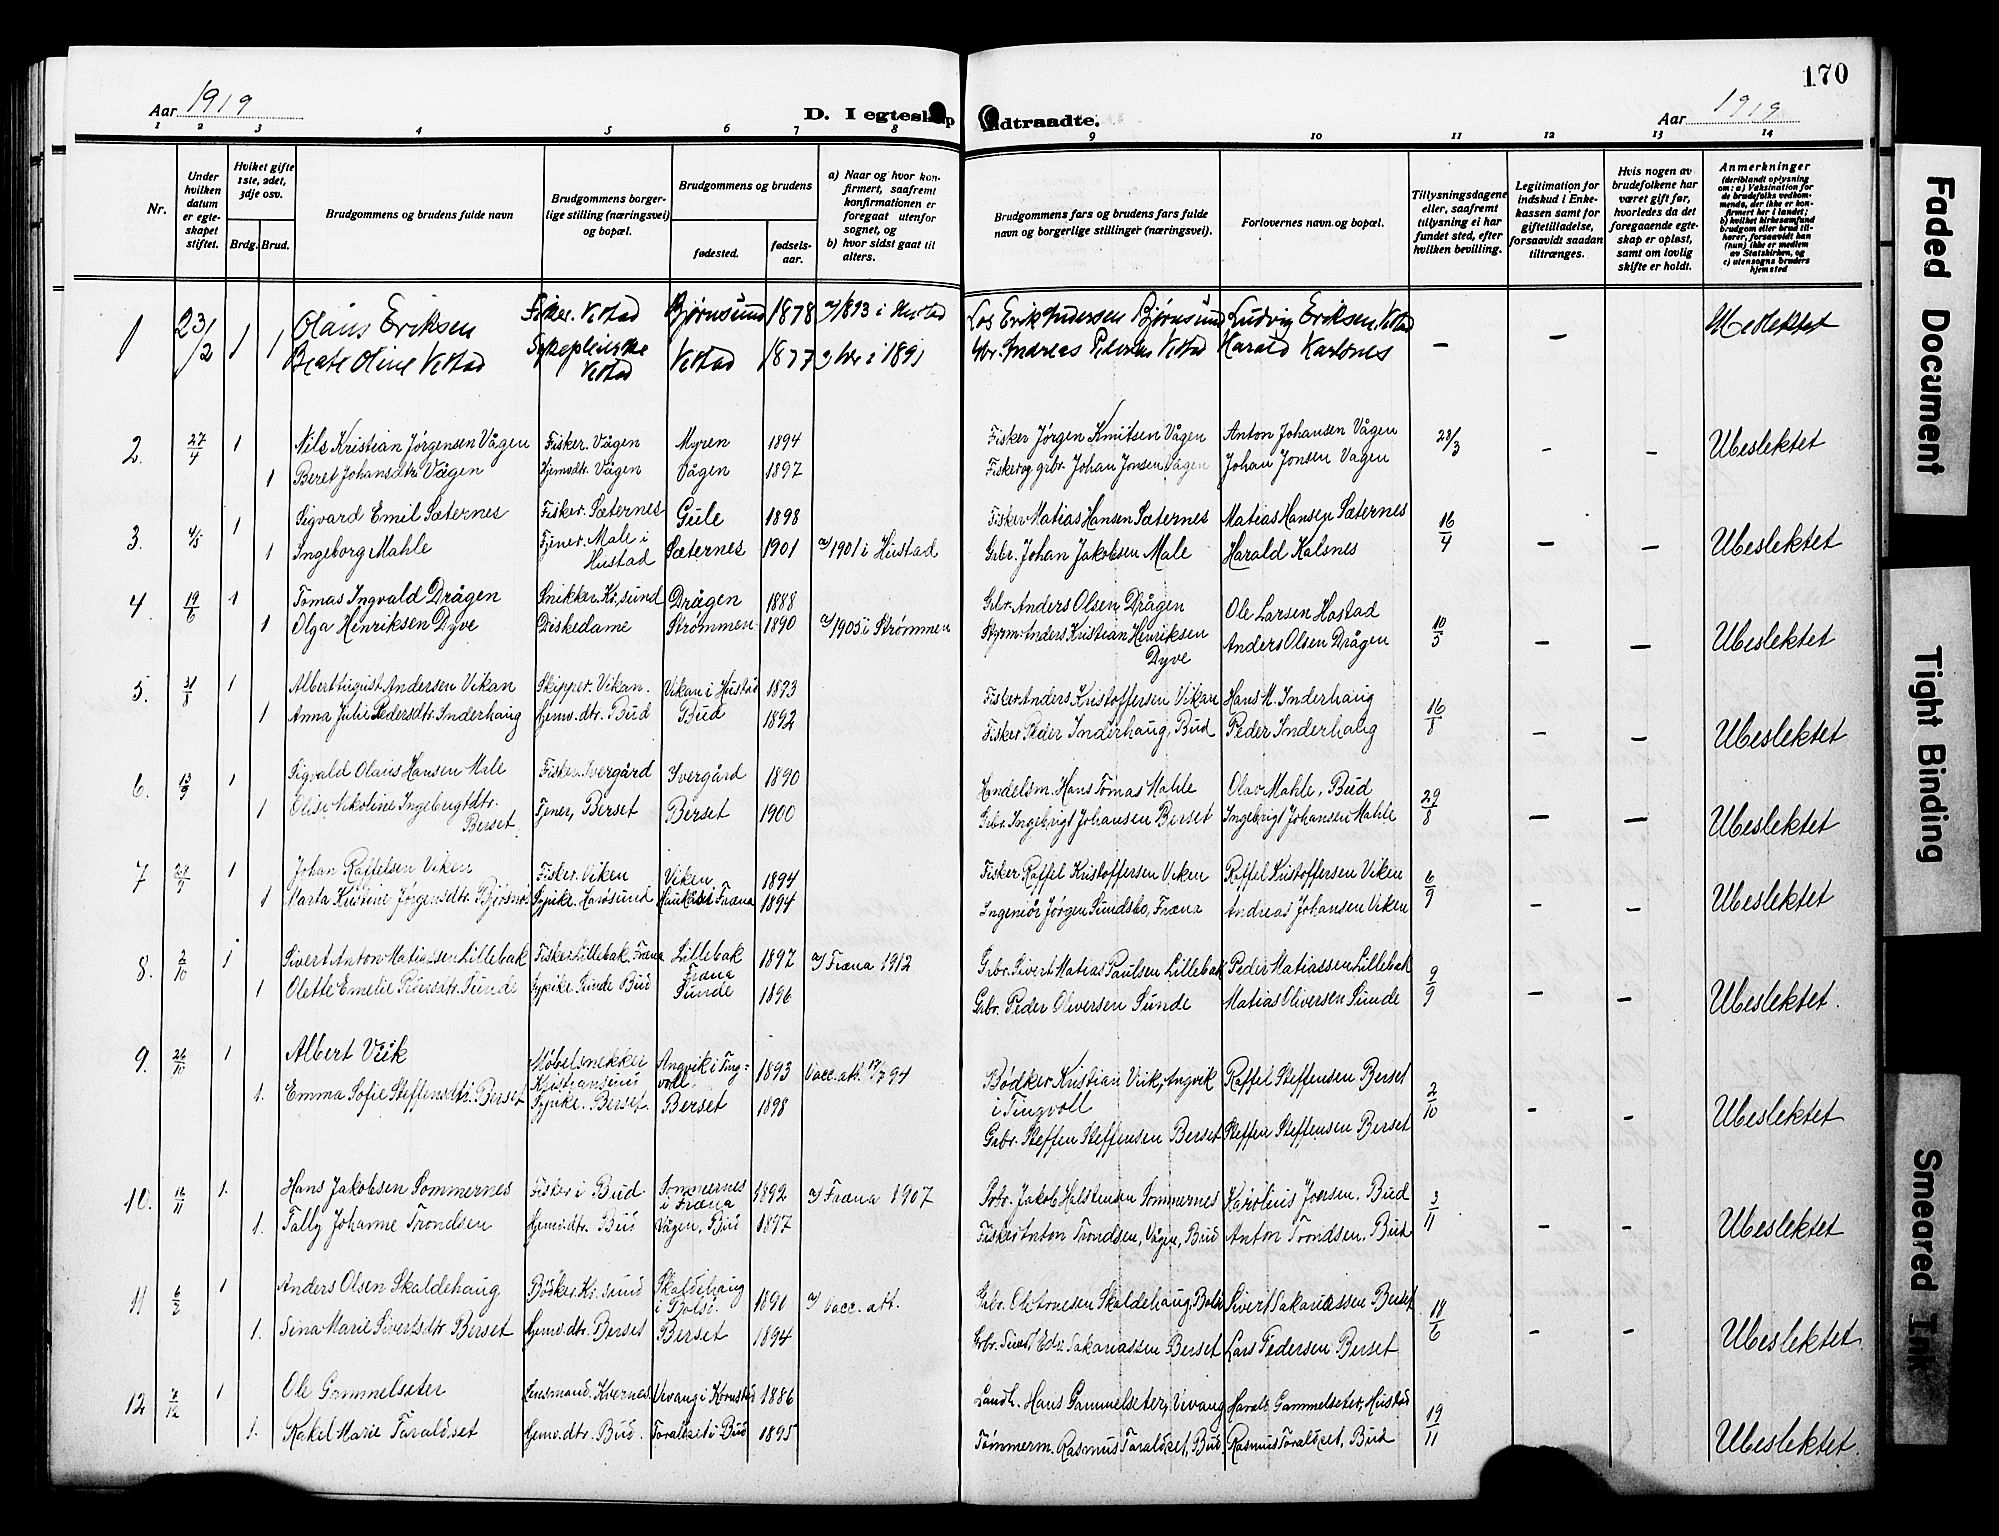 170
Aar 1919
D. I egteskap
indtraadte.
Aar 1919
1 2 3 4 5 6 7 8 9 10 11 12 13 14
Nr.
Under hvilken datum er egteskapet stiftet.
Hvilket gifte 1ste, 2det, 3dje osv.
Brdg. Brud.
Brudgommens og brudens fulde navn
Brudgommens borgerlige stilling (næringsvei) og bopæl.
Brudgommens og brudens
fødested.
fødselsaar.
a) Naar og hvor konfirmert, saafremt konfirmationen er foregaat utenfor sognet, og
b) hvor sidst gaat til alters.
Brudgommens fars og brudens fars fulde navn og borgerlige stillinger (næringsvei).
Forlovernes navn og bopæl.
Tillysningsdagene eller, saafremt tillysning ei har fundet sted, efter hvilken bevilling.
Legitimation for indskud i Enkekassen samt for giftetilladelse, forsaavidt saadan tiltrænges.
Hvis nogen av brudefolkene har været gift før, hvorledes da det foregaaende egteskap er opløst, samt om lovlig skifte er holdt.
Anmerkninger (deriblandt oplysning om: a) Vaksination for de brudefolks vedkommende, der ikke er konfirmert her i landet; b) hvilket kirkesamfund brudgom eller brud tilhører, forsaavidt han (hun) ikke er medlem av Statskirken, og c) utensogns bruders hjemsted
1 23/2 1 Olaus Eriksen Fisker. Vestad Bjørnsund 1878 a/ 1893 i Hustad Los Erik Andersen Bjørnsund Ludvig Eriksen, Vestad — — Ubeslektet
1 Beate Oline Vestad Sykepleierske Vestad Vestad 1877 Gbr. Andreas Pedersen Vestad Harald Karlsnes
2. 27/4 1 Nils Kristian Jørgensen Vågen Fisker. Vågen Myren 1894 Fisker Jørgen Knutsen Vågen Anton Johansen Vågen 28/3 - - Ubeslektet
1 Beret Johansdtr. Vågen Hjemvdtr. Vågen Vågen 1897 Fisker og grbr. Johan Jonsen Vågen Johan Jonsen Vågen
3. 4/5 1 Sigvard Emil Sæternes Fisker. Sæternes Gule 1898 Fisker Matias Hansen Sæternes Matias Hansen Sæternes 16/4 — — Ubeslektet
1 Ingeborg Mahle Tjener. Male i Hustad Sæternes 1901 a/ 1901 i Hustad Grbr. Johan Jakobsen Male Harald Kalsnes
4. 19/6 1 Tomas Ingvald Drågen Snikker. Kr.sund Drågen 1888 Grbr. Anders Olsen Drågen Ole Larsen Hostad 10/5 — — Ubeslektet
1 Olga Henriksen Dyve Diskedame Strømmen 1890 a/ 1905 i Strømmen Styrm. Anders Kristian Henriksen Dyve Anders Olsen Drågen
5. 31/8 1 Albert August Andersen Vikan Skipper. Vikan. Vikan i Hustad 1893 Fisker Anders Kristoffersen Vikan Hans M. Inderhaug 16/8 — — Ubeslektet
1 Anna Julie Pedersdtr. Inderhaug Hjemv. dtr. Bud Bud 1892 Fisker Peder Inderhaug, Bud Peder Inderhaug
6. 13/9 1 Sigvald Olaus Hansen Male Fisker. Ivergård Ivergård 1890 Handelsm. Hans Tomas Mahle Olav Mahle, Bud 29/8 — — Ubeslektet
1 Nikoline Ingebrigtdtr. Berset Tjener, Berset Berset 1900 Grbr. Ingebrigt Johansen Berset Ingebrigt Johansen Mahle
7 1 Johan Raffelsen Viken Fisker. Viken Viken 1894 Fisker Raffel Kristoffersen Viken Raffel Kristoffersen Viken 6/9 - - Ubeslektet
1 Marta Kristine Jørgensdtr. Bjøsnes Harøsund i Fræna 1894 Ingeniør Jørgen Sundsbo, Fræna Andreas Johansen Viken
8. 2/10 1 Sivert Anton Matiassen Lillebak Fisker Lillebak Fræna Lillebak Fræna 1897 a/ Fræna 1912 Grbr. Sivert Matias Paulsen Lillebak Peder Matiassen Lillebak 9/9 — — Ubeslektet.
1 Olette Emelie Pedersdtr. Sunde Sypike Sunde Bud Sunde 1896 Grbr. Peder Oliversen Sunde Matias Oliversen Sunde
9. 26/10 1 Albert Viik Møbelsnekker Kristiansund Angvik i Tingvoll. 1893 Vacc. att. Bødker Kristian Viik, Angvik i Tingvoll Raffel Steffensen Berset 2/10 - - Ubeslektet
1. Emma Sofie Steffensdtr. Berset Sypike. Berset. Berset 1898 Grbr. Steffen Steffensen Berset Steffen Steffensen Berset
10. 16/11 1. Hans Jakobsen Sommernes Fisker i Bud Sommernes i Fræna 1892 a/ Fræna 1907 Grbr. Jakob Halstensen Sommernes Karolius Joersen. Bud 3/11 - - Ubeslektet
1. Tally Johanne Trondsen Hjemv. dtr. Bud Vågen, Bud 1897 Fisker Anton Trondsen, Vågen, Bud Anton Trondsen. Bud
11 1 Anders Olsen Skaldehaug Bødker. Kr.sund Skaldehaug i Bolsø. 1890 a/ Vacc. att. Grbr. Ole Arnesen Skaldehaug, Bolsø Sivert Sakariassen Berset 18/6 - - Ubeslektet
1. Sina Marie Sivertsdtr. Berset Hjemv. dtr. Berset Berset 1894 Grbr. Sivert Edv. Sakariassen Berset Lars Pedersen Berset
12 7/12 1 Ole Gammelseter Lensmand. Kvernes Vevang i Kornstad 1886 Landh. Hans Gammelseter, Vevang Harald Gammelseter, Hustad 19/11 Ubeslektet.
1. Rakel Marie Taraldset Hjemv. dtr. Bud. Taraldset i Bud 1895 Tømmerm. Rasmus Taraldset, Bud. Rasmus Taraldset, Bud
Faded Document
Tight Binding
Smeared Ink